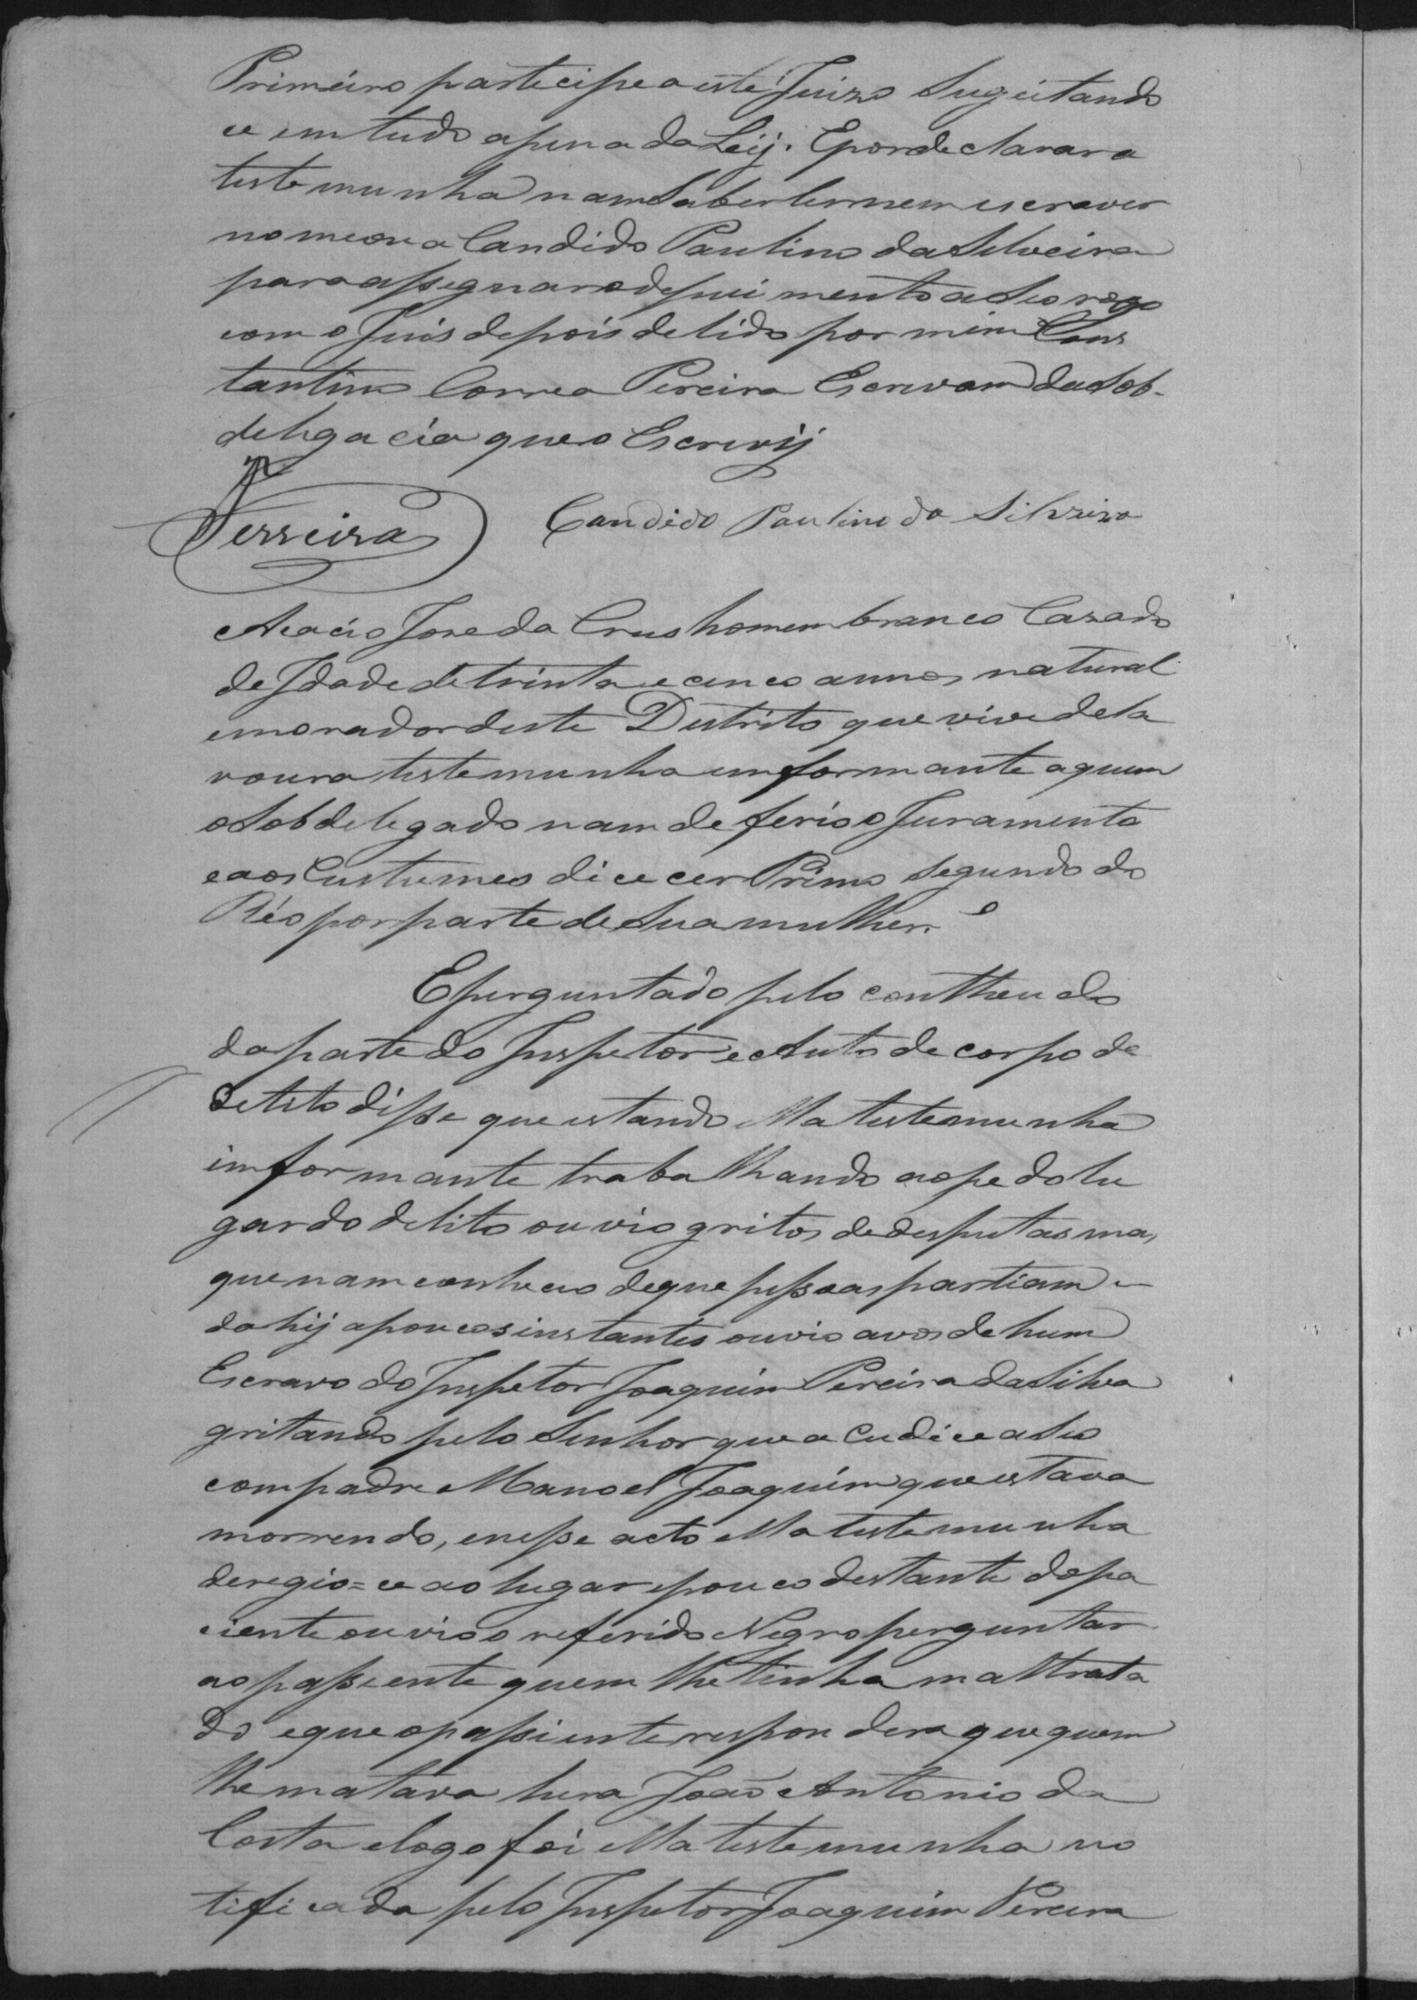 Primeiro participe a este Juizo Sugeitando
ce em tudo a pena da Leij. E por declarar a
testemunha nam Saber ler nem escrever
nomeou a Candido Paulino da Silveira
para assegnar o depuimento a Seo rogo
com o Juis depois de lido por mim Cons
tantino Correa Pereira Escrivam da Sob-
delegacia que o Escrevij
Ferreira Candido Paulino da Silveira
Acacio Jose da Crus homem branco Cazado
de Idade de trinta e cinco annos natural
e morador deste Destrito que vive de la
voura testemunha imformante a quem
o Sobdelegado nam deferio o Juramento
e aos Custumes dice cer Primo segundo do
Réo por parte de Sua mulher.
E perguntado pelo contheudo
da parte do Inspetor e Auto de corpo de
delito disse que estando Ella testemunha
imformante trabalhando ao pe do lu
gar do delito ouvio gritos de desputas mas
que nam conheceo de que pessoas partiam e
dahij a poucos instantes ouvio a vos de hum
Escravo do Inspetor Joaquim Pereira da Silva
gritando pelo Senhor que a cudice a Seo
compadre Manoel Joaquim que estava
morrendo, e nesse acto Ella testemunha
deregio=ce ao lugar e pouco destante do pa
ciente ouvio o referido Negro perguntar
ao passiente quem lhe tinha maltrata
do e que o passiente respondera que quem
lhe matava hera João Antonio da
Costa e logo foi Ella testemunha no
tificada pelo Inspetor Joaquim Pereira